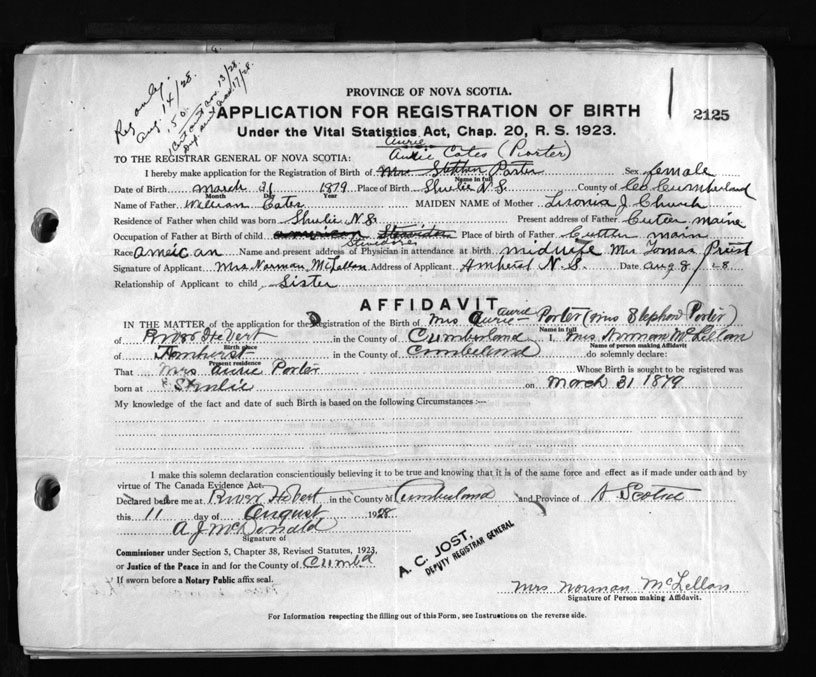 Reg only.
Aug. 14/28.
.50
PROVINCE OF NOVA SCOTIA.
APPLICATION FOR REGISTRATION OF BIRTH
2125
Under the Vital Statistics Act, Chap. 20, R. S. 1923.
Aurie
TO THE REGISTRAR GENERAL OF NOVA SCOTIA: Cates (Porter)
I hereby make application for the Registration of Birth of Mrs. Stephen Porter Sex female
Name in full
Date of Birth March 31 1879 Place of Birth Shulie N.S. County of Co Cumberland
Month Day Year
Name of Father William Cates MAIDEN NAME of Mother J. Church
Residence of Father when child was born Shulie N.S. Present address of Father Cuter Maine
Occupation of Father at Birth of child american Place of birth of Father Cutter main
Stevidores
Race ameican Name and present address of Physician in attendance at birth midwife Mrs Tomas Priest
Signature of Applicant Mrs. Norman McLellan Address of Applicant Amherst N.S. Date Aug 8/28
Relationship of Applicant to child Sister
AFFIDAVIT
IN THE MATTER of the application for the Registration of the Birth of Mrs Aurie Aurie Porter (Mrs Stephen Porter)
Name in full
of River Hebert in the County of Cumberland I, Mrs. Norman McLellan
Birth place Name of person making Affidavit
of Amherst in the County of Cumbeland do solemnly declare:
Present residence
That Mrs Aurie Porter Whose Birth is sought to be registered was
born at Shulie on March 31 1879
My knowledge of the fact and date of such Birth is based on the following Circumstances :—
I make this solemn declaration conscientiously believing it to be true and knowing that it is of the same force and effect as if made under oath and by
virtue of The Canada Evidence Act.
Declared before me at River Hebert in the County of Cumberland and Province of N Scotia
this 11 day of August 1928
A J McDonald
Signature of
Commissioner under Section 5, Chapter 38, Revised Statutes, 1923,
or Justice of the Peace in and for the County of Cumbd
If sworn before a Notary Public affix seal.
A. C. JOST,
DEPUTY REGISTRAR GENERAL
Mrs Norman McLellan
Signature of Person making Affidavit.
For Information respecting the filling out of this Form, see Instructions on the reverse side.